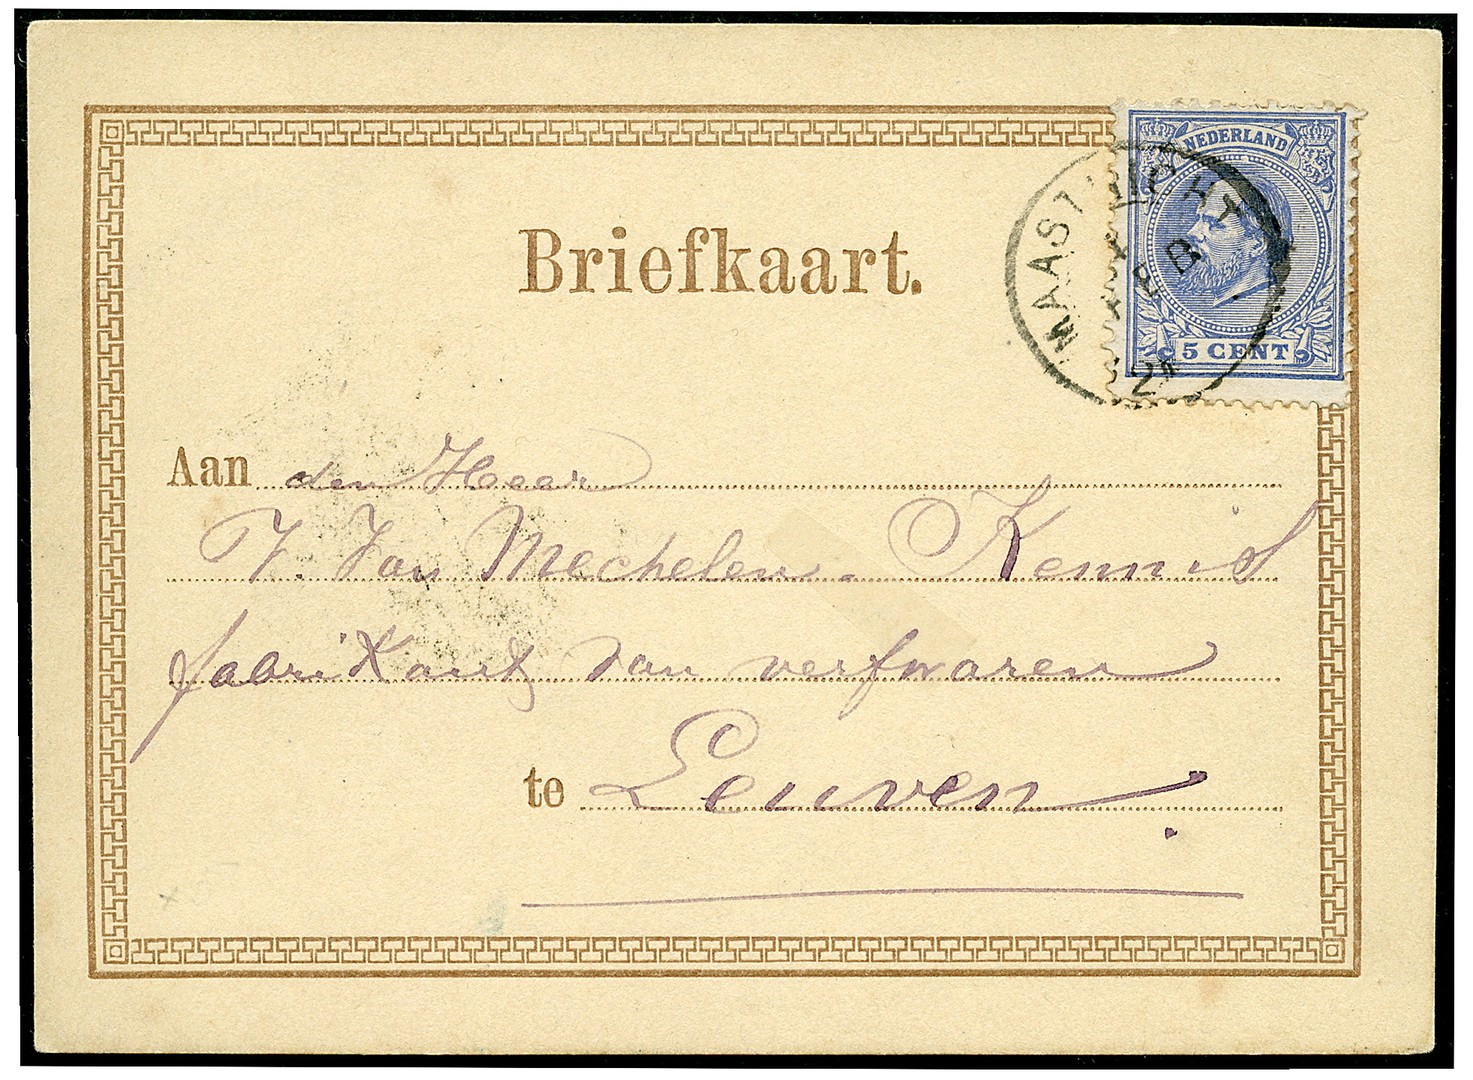 NEDERLAND
MAASTRICHT
5 CENT
Briefkaart.
Aan den Heer
J. Van Mechelen - Kennis
fabrikant van verfwaren
te Leuven.